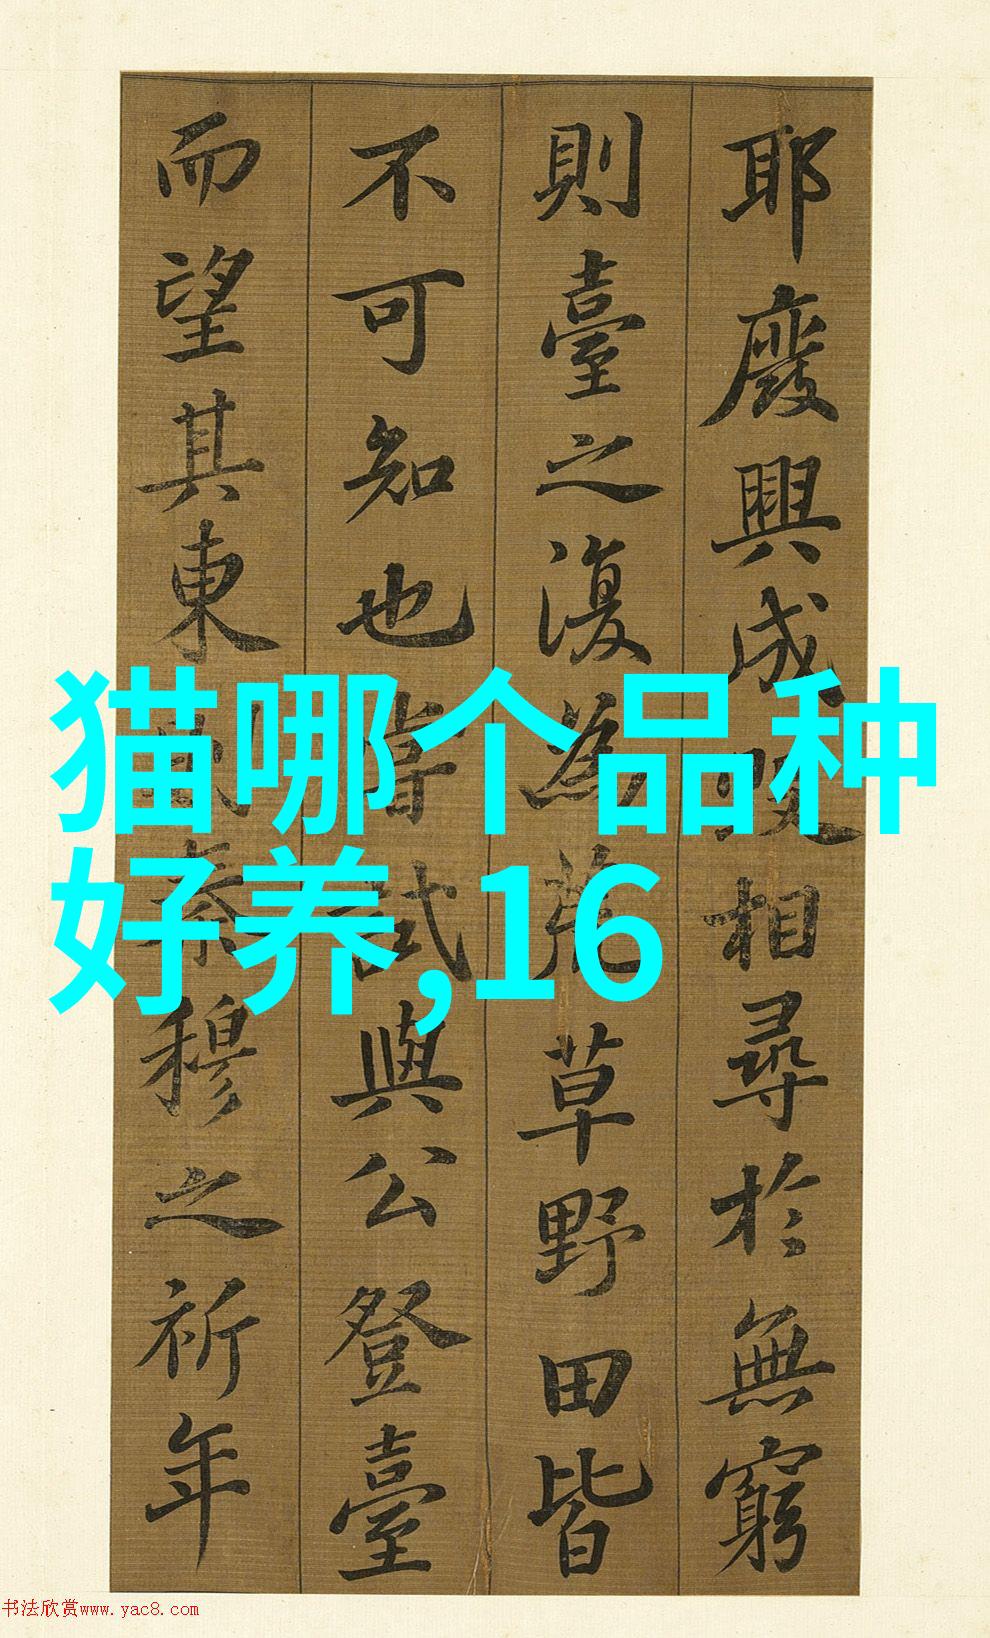 耶廢興成毀相尋於無窮
則臺之復為荒草野田皆
不可知也嘗試與公登臺
而望其東則秦穆之祈年
猫哪个品种
好养,16
书法欣赏www.yac8.com